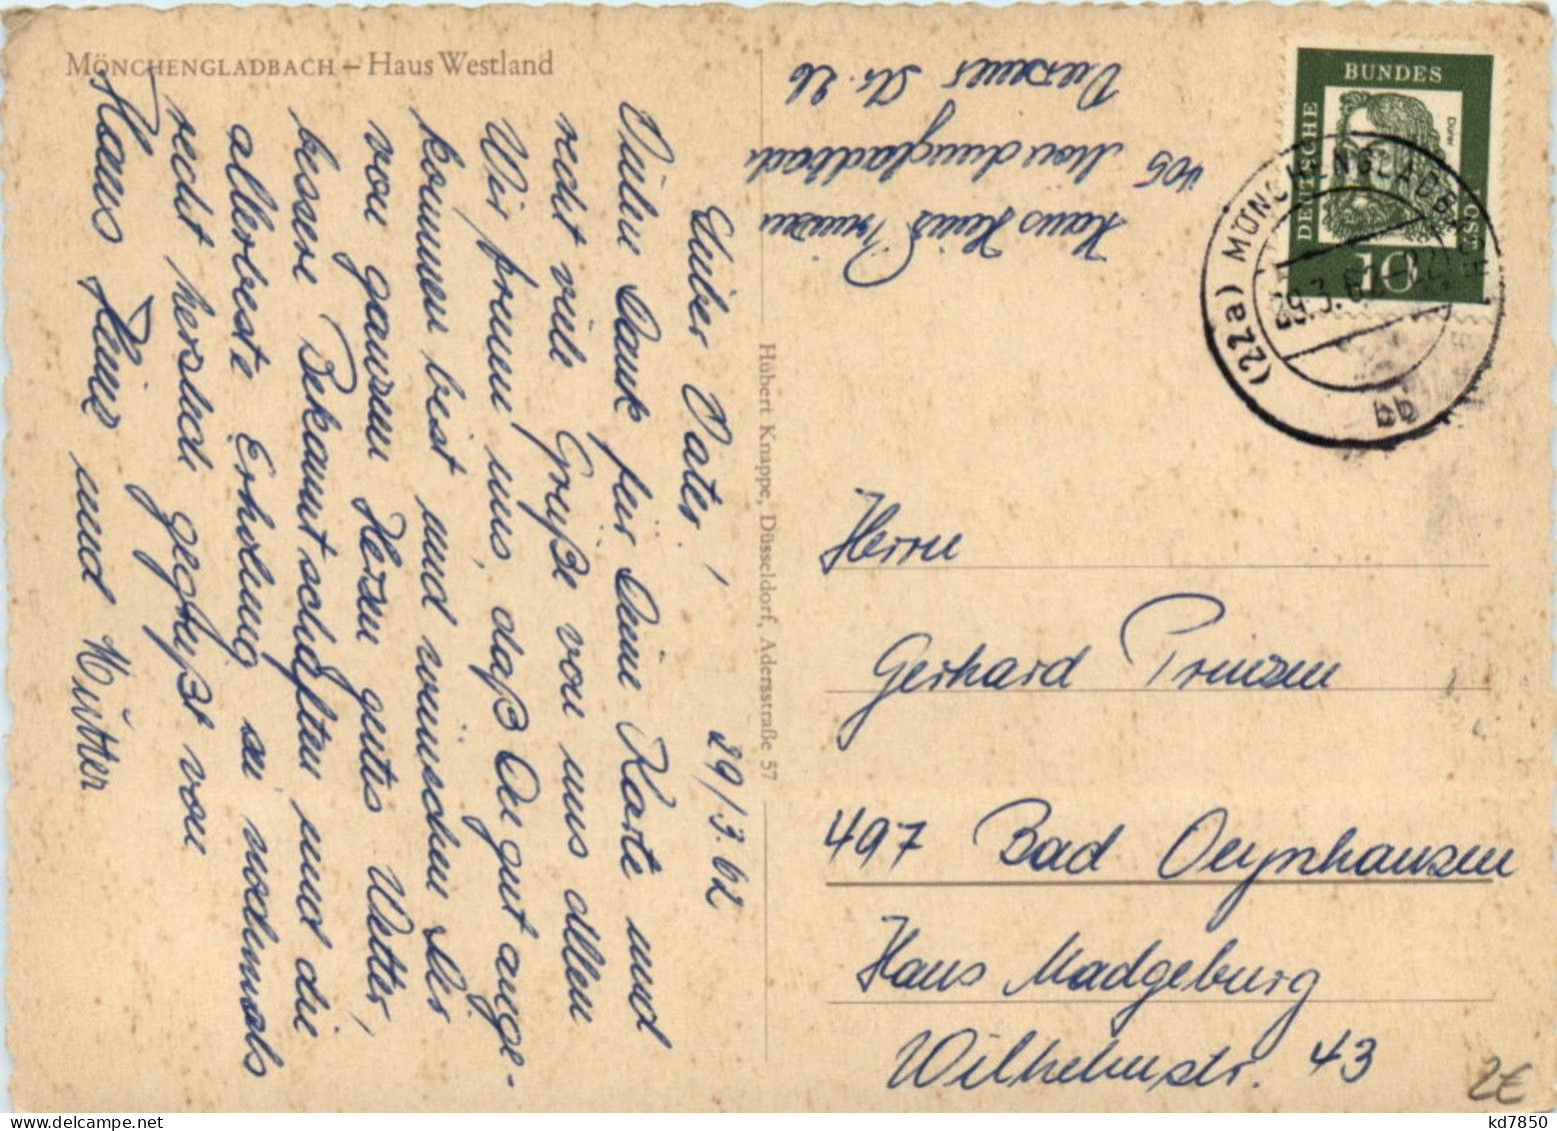 MÖNCHENGLADBACH – Haus Westland
29/3.62
Lieber Vater!
Vielen Dank für Deine Karte und
recht viele Grüße von uns allen
Wir freuen uns, daß Du gut ange-
kommen bist und wünschen Dir
von ganzem Herzen gutes Wetter,
bessere Bekanntschaften und die
allerbeste Erholung an nochmals
recht herzlich gegrüßt von
Hans Heinz und Mutter
Hans Heinz Prinzen
405 Mönchengladbach
Str. 26
Hubert Knappe, Düsseldorf, Adersstraße 57
DEUTSCHE BUNDESPOST
Dürer
10
(22a) MÖNCHENGLADBACH
29.3.62
bb
Herrn
Gerhard Prinzen
497 Bad Oeynhausen
Haus Madgeburg
Wilhelmstr. 43
2€
kd7850